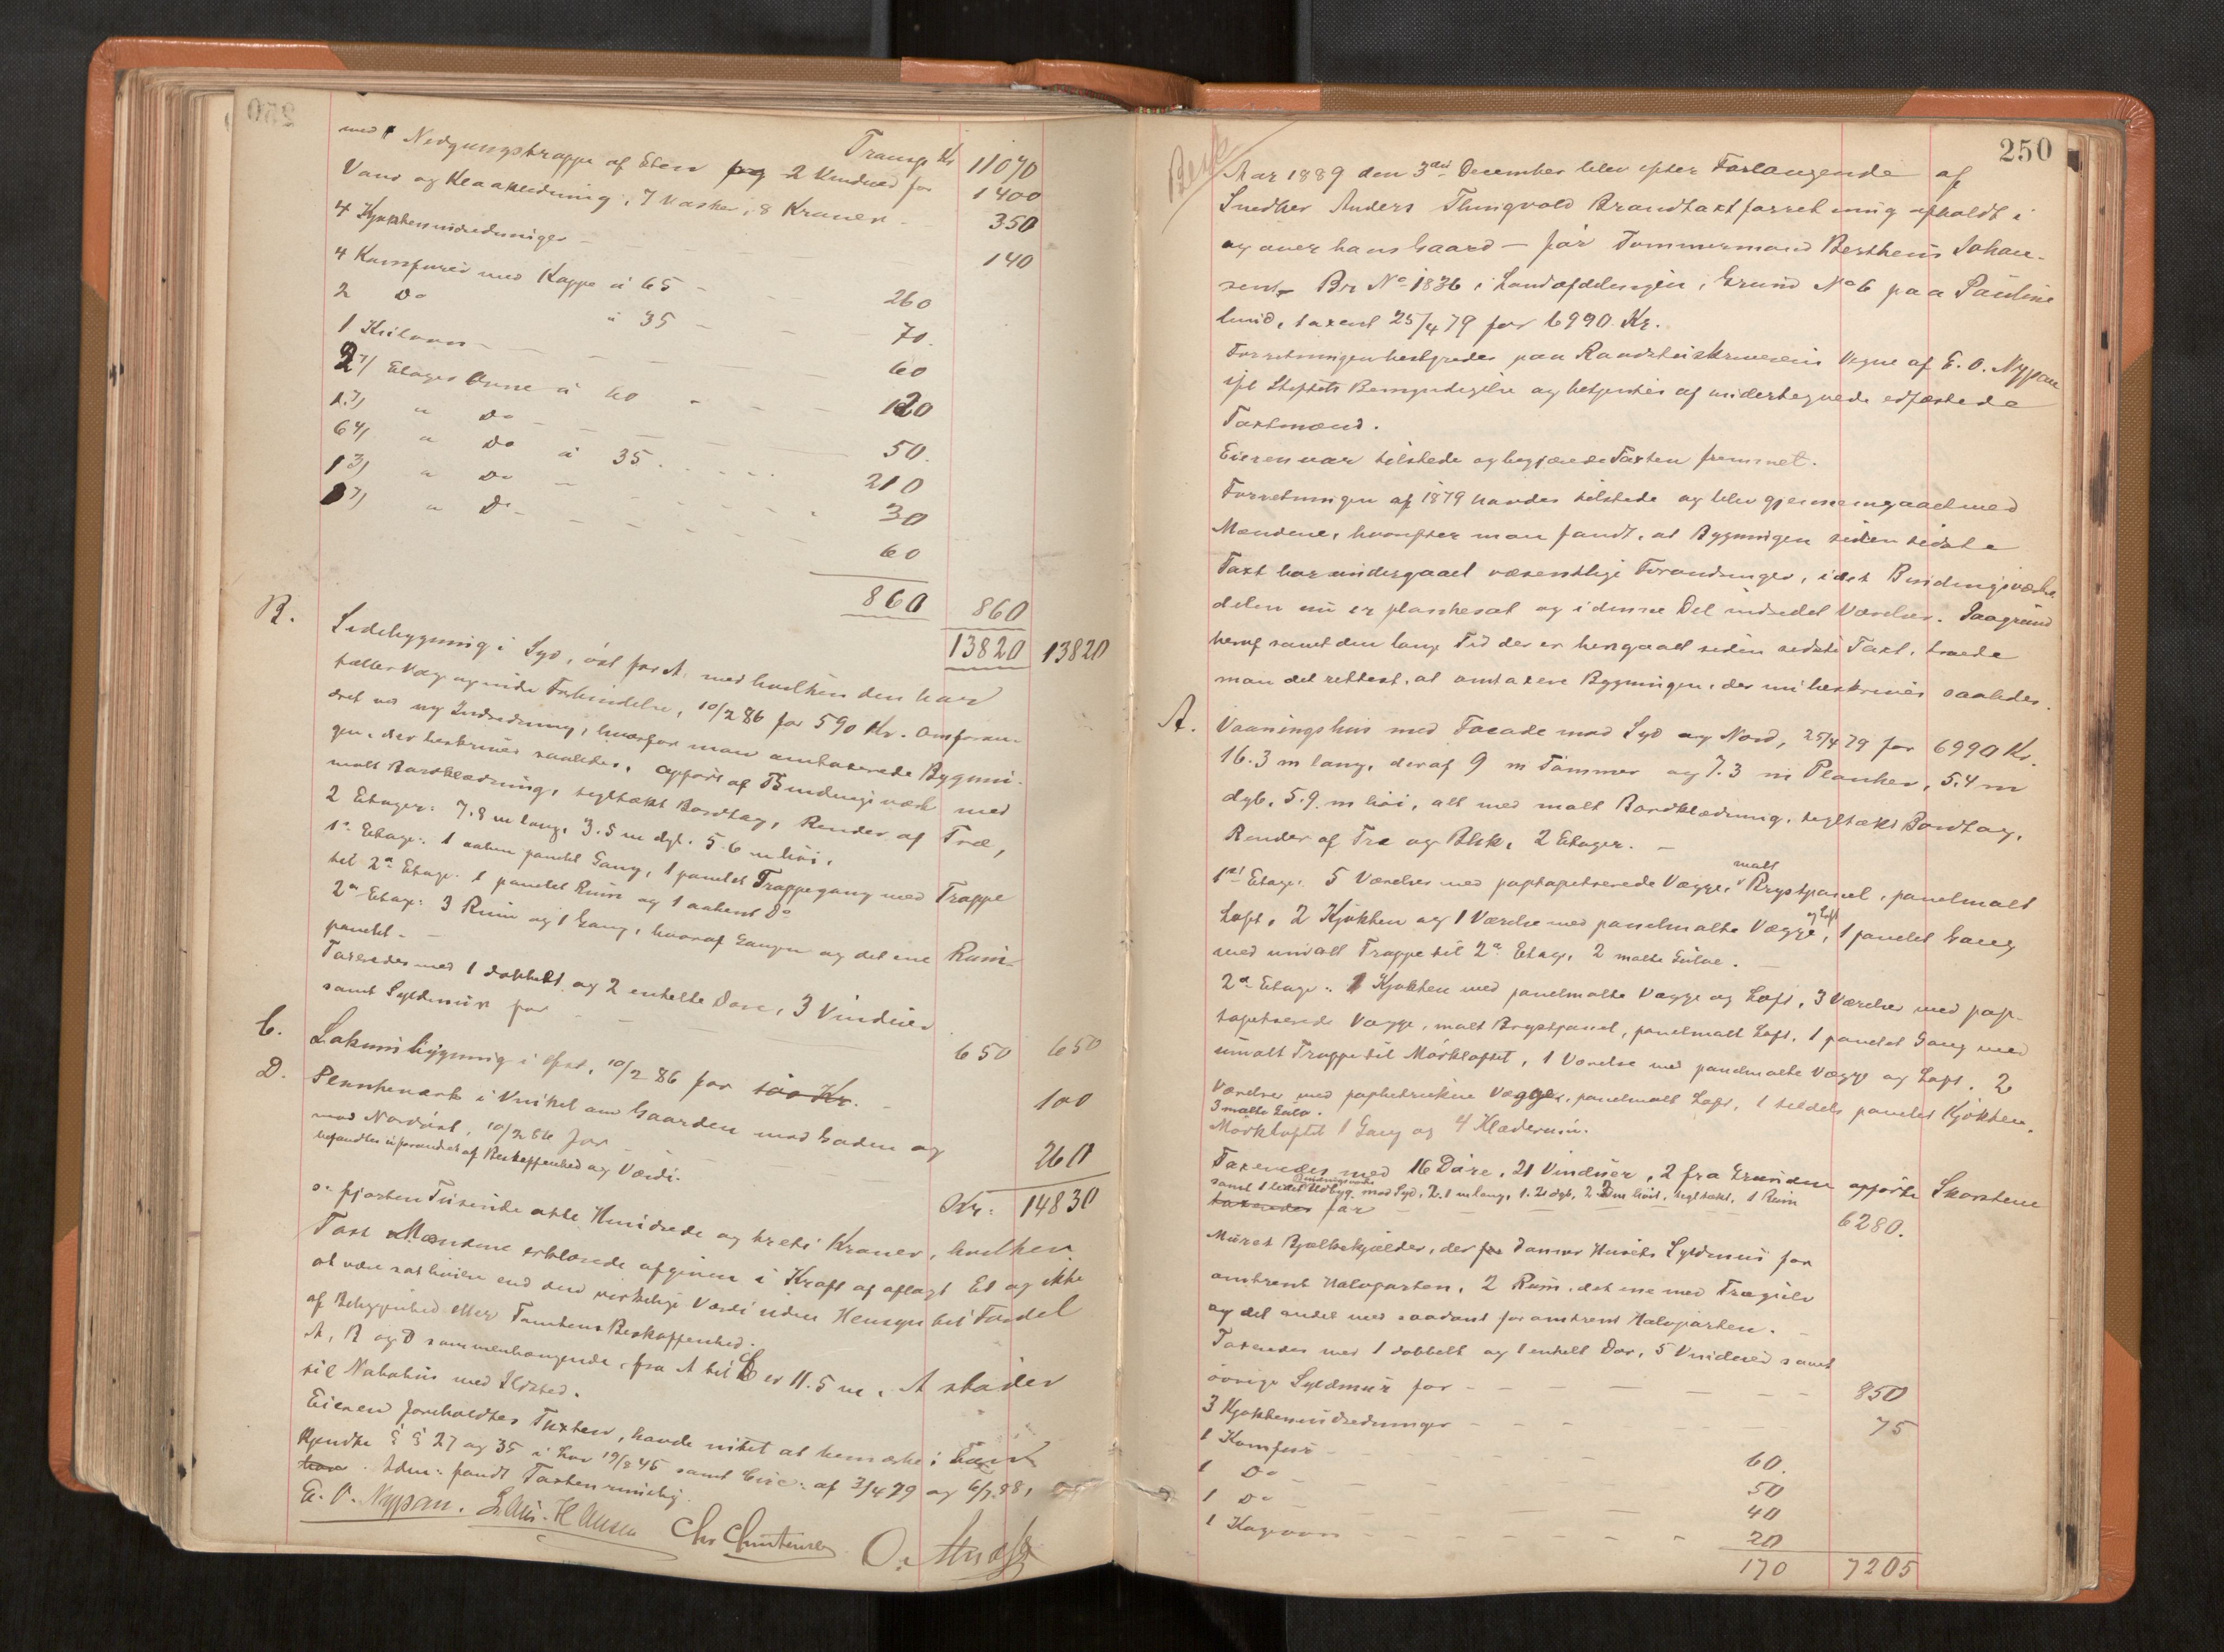 Transp. Kr 11070
med 1 Nedgangstrappe af Sten 2 Vinduer for 1400
Vand og Kloakledning, 7 Vasker, 8 Kraner 350
4 Kjøkkenindredninger 140
4 Komfurer med Kappe á 65 260
2 Do á 35 70.
1 Kitovn 60
2 Etages Ovne á 60 120
1 " Do 50.
6 " Do á 35 210
1 " Do 30
" Do 60
860 860
13820 13820
B. Sidebygning i Syd, öst for A, med hvilken den har
fælles Væg og indv Forbindelse, 10/2 86 for 590 Kr. Omforan-
dret ved ny Indredning, hvorfor man omtaxerede Bygnin-
gen, der beskrives saaledes, opfört af Bindingsværk med
malt Bordklædning, tegltækt Bordtag, Render af Træ,
2 Etager. 7.8 m lang, 3.5 m dyb. 5.6 m höi.
1ste Etage: 1 aaben panelet Gang, 1 panelet Trappegang med Trappe
til 2den Etage. 1 panelet Rum og 1 aabent Do
2den Etage: 3 Rum og 1 Gang, hvoraf Gangen og det ene Rum
panelt. —
Taxeredes med 1 dobbelt og 2 enkelte Döre, 3 Vinduer
samt Syldmur for 650 650
C. Lokumbygning i Öst, 10/2 86 for 100 Kr. 100
D. Plankeværk i Vinkel om Gaarden mod Gaden og
mod Nordöst, 10/2 86 for 260
befandtes uforandret af Beskaffenhed og Værdi.
Kr. 14830
s. fjorten Tusinde otte Hundrede og treti Kroner, hvilken
Taxt Mændene erklærede afgiven i Kraft af aflagt Ed og ikke
at være sat höiere end den virkelige Værdi uden Hensyn til Fordel
af Beliggenhed eller Tomtens Beskaffenhed.
A, B og D sammenhængende, fra A til C er 11.5 m. A stöder
til Nabohus med Ildsted.
Eieren foreholdtes Taxten, havde intet at bemærke i
Kjendte § § 27 og 35 i Lov 19/8 45 samt Circ. af 3/4 79 og 6/7 88,
fandt Taxten rimelig.
E. O. Nypan. Hansen Chr Christensen O.
250
Besk.
Aar 1889 den 3die December blev efter Forlangende af
Snedker Anders Thingvold Brandtaxtforretning afholdt i
og over hans Gaard — för Tömmermand Berthens Johan-
sens Br No 1836 i Landafdelingen, Grund No 6 paa Pauline
lund, taxeret 25/4 79 for 6990 Kr.
Forretningen bestyredes paa Raadstueskriverens Vegne af E. O. Nypan
ifl Stiftets Bemyndigelse og betjentes af undertegnede edfæstede
Taxtmænd.
Eieren var tilstede og begjærede Taxten fremmet.
Forretningen af 1879 havdes tilstede og blev gjennemgaaet med
Mændene, hvorefter man fandt, at Bygningen siden sidste
Taxt har undergaaet væsentlige Forandringer, idet Bindingsværks
delen nu er plankesat og i denne Del indredet Værelser. Paagrund
heraf samt den lange Tid der er hengaaet siden sidste Taxt, troede
man det rettest, at omtaxere Bygningen, der nu beskrives saaledes.
A. Vaaningshus med Facade mod Syd og Nord, 25/4 79 for 6990 Kr.
16.3 m lang, deraf 9 m Tömmer og 7.3 m Planker, 5.4 m
dyb, 5.9 m höi, alt med malt Bordklædning, tegltækt Bordtag,
Render af Træ og Blik, 2 Etager. —
1ste Etage: 5 Værelser med paptapetserede Vægge, malt Brystpanel, panelmalt
Loft, 2 Kjökken og 1 Værelse med panelmalte Vægge og Loft, 1 panelet Gang
med umalt Trappe til 2den Etage, 2 malte Gulve. —
2den Etage: 1 Kjökken med panelmalte Vægge og Loft, 3 Værelser med pap-
tapetserede Vægge, malt Brystpanel, panelmalt Loft, 1 panelet Gang med
umalt Trappe til Mörkloftet, 1 Værelse med panelmalte Vægge og Loft. 2
Værelser med papbetrukne Vægge, panelmalt Loft, 1 tildels panelet Kjökken.
3 malte Gulv.
Mörkloftet 1 Gang og 4 Klæderum.
Taxeredes med 16 Döre, 21 Vinduer, 2 fra Grunden opförte Skorstene
samt 1 lidet Udbyg. mod Syd, 2.1 m lang, 1.2 dyb, 2.2 m höit, tegltækt, 1 Rum
taxeredes for 6280.
Muret Bjælkekjælder, der danner Husets Syldmur for
omtrent Halvparten, 2 Rum, det ene med Trægulv
og det andet med saadant for omtrent Halvparten. —
Taxeredes med 1 dobbelt og 1 enkelt Dör, 5 Vinduer samt
övrige Syldmur for 850
3 Kjökkenindredninger 75
1 Komfur 60.
1 Do 50
1 Do 40
1 Kogeovn 20
170 7205